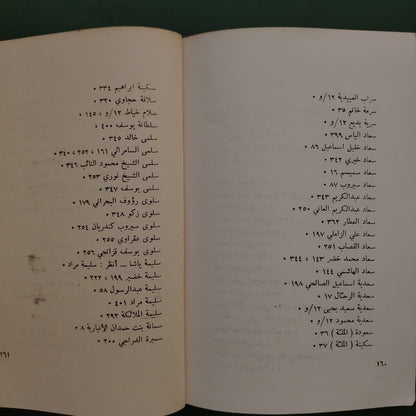 سراب العبيدية ١٢/و •
سرمة خاتم ٣٥ •
سرية بديع ١٢/و •
سعاد الياس ٣٩٩ •
سعاد خليل اسماعيل ٨٦ •
سعاد خيري ٣٤٧ •
سعاد سميسم ١٦ •
سعاد سيروب ٨٧ •
سعاد عبدالكريم ٣٤٣ •
سعاد عبدالكريم العاني ٢٥٠ •
سعاد العطار ٣٦٢ •
سعاد علي الزاملي ١٩٧ •
سعاد القصاب ٢٥١ •
سعاد محمد خضر ١٤٣ ، ٣٤٤ •
سعاد الهاشمي ١٤٤ •
سعدية اسماعيل الصالحي ١٩٨ •
سعدية الرحال ١٧ •
سعدية سعيد يحيى ١٢/و •
سعدية محمود ١٢/و •
سعودة ( الملة ) ٣٦ •
سكينة ( الملة ) ٣٧ •
١٦٠
سكينة ابراهيم ٣٣٤ •
سلافة حجاوي ٣٢٠ •
سلام خياط ١٢/و ، ١٤٥ •
سلطانة يوسف ٤٠٠ •
سلمى خالد •
سلمى السامرائي ١٦١ ، ٢٥٢ ، ٣٤٠ •
سلمى الشيخ محمود النائب ٣٤٦ •
سلمى الشيخ نوري ٢٥٣ •
سلمى يوسف ٣٤٧ •
سلوى رؤوف البحراني ١٧٩ •
سلوى زكو ٣٤٨ •
سلوى سيروب كندريان ٢٥٤ •
سلوى عقراوي ٢٥٥ •
سلوى يوسف قزانجي ٢٥٦ •
سليمة باشا ـ أنظر : سليمة مراد •
سليمة خضير ١٩٩ ، ٢٢٢ •
سليمة عبدالرسول ٥٨ •
سليمة مراد ٤٠١ •
سليمة الملائكة ٢٩٢ •
سمانة بنت حمدان الأنبارية ٨ •
سميرة الدراجي ٢٠٠ •
١٦١